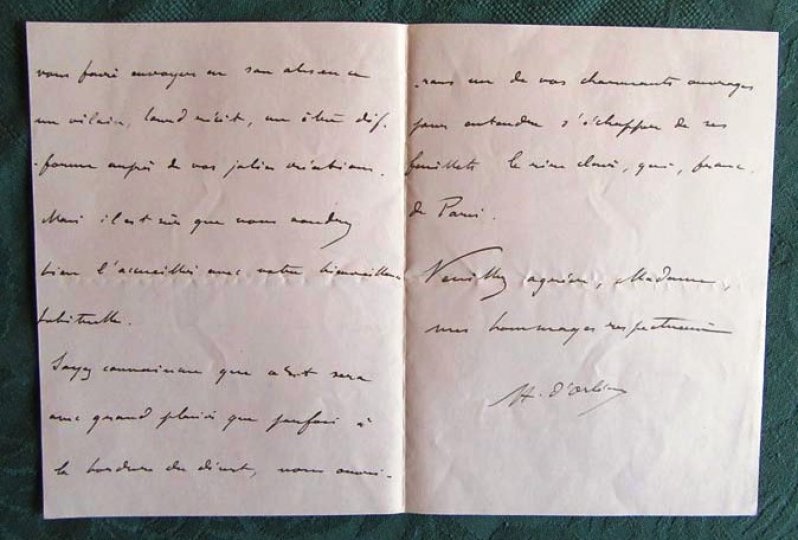 vous faire envoyer en son absence
un vilain, lourd récit, un être dif-
-forme auprès de vos jolies créations.
Mais il est sûr que vous voudrez
bien l'accueillir avec votre bienveillance
habituelle.
Soyez convaincue que c'est
avec grand plaisir que parfois à
la bordure du désert, nous ouvri-
-rons un de vos charmants ouvrages
pour entendre s'échapper de ses
feuillets le rire clair, gai, franc,
de Paris.
Veuillez agréer, Madame,
mes hommages respectueux
H. d'Orléans